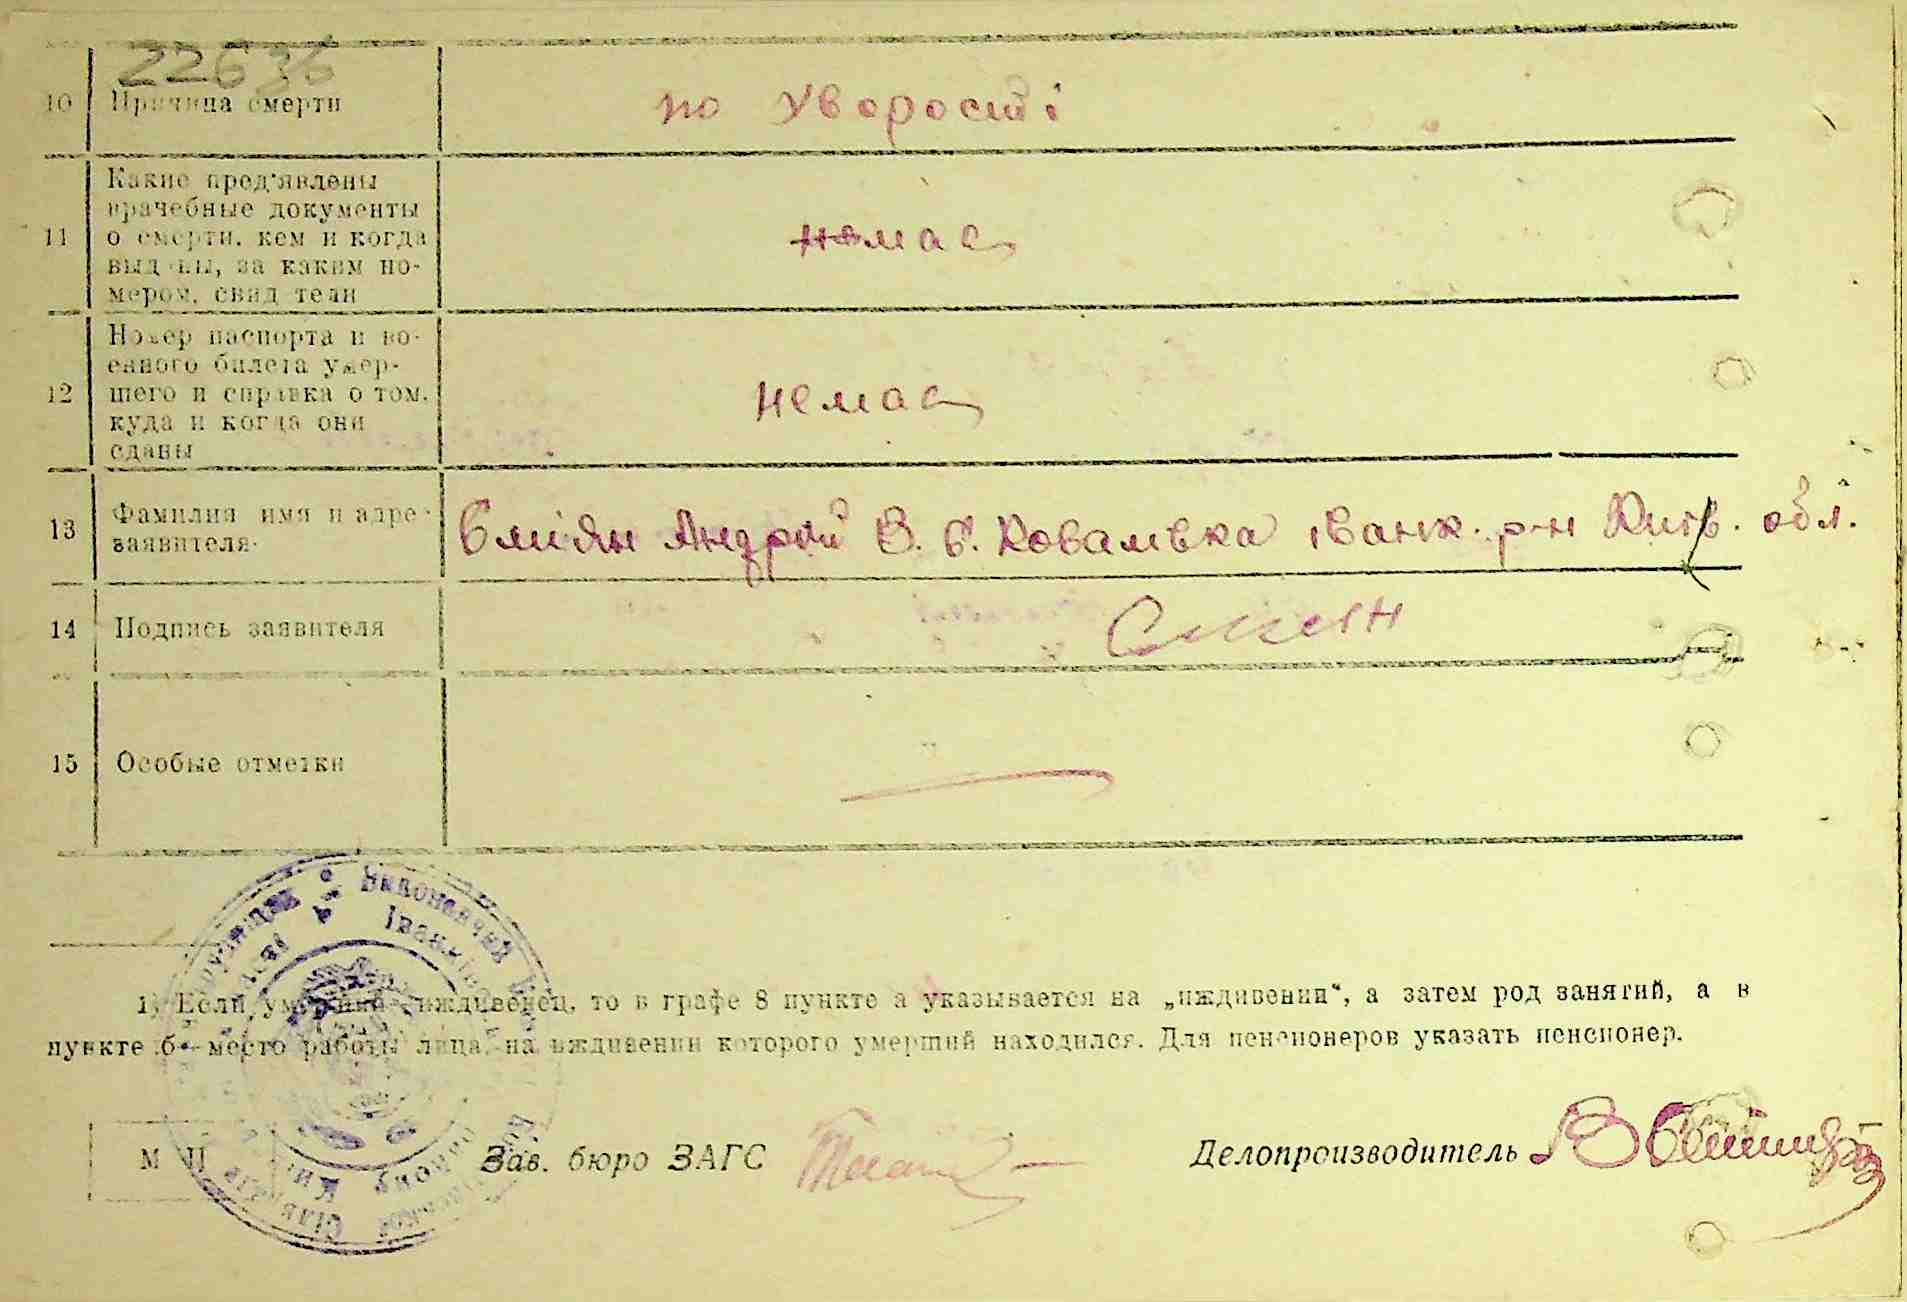 22636
10 Причина смерти по уворости
11 Какие пред'явлены
врачебные документы
о смерти, кем и когда
выданы, за каким но-
мером, свидетели
немає
12 Номер паспорта и во-
енного билета умер-
шего и справка о том,
куда и когда они
сданы
немає
13 Фамилия имя и адрес
заявителя
Андрій В. с. Ковалівка Іванк. р-н Київ. обл.
14 Подпись заявителя
15 Особые отметки
1) Если умерший иждивенец, то в графе 8 пункте а указывается на „иждивении“, а затем род занятий, а в
пункте „б“ место работы лица, на иждивении которого умерший находился. Для пенсионеров указать пенсионер.
М П Зав. бюро ЗАГС Делопроизводитель
Виконавчий